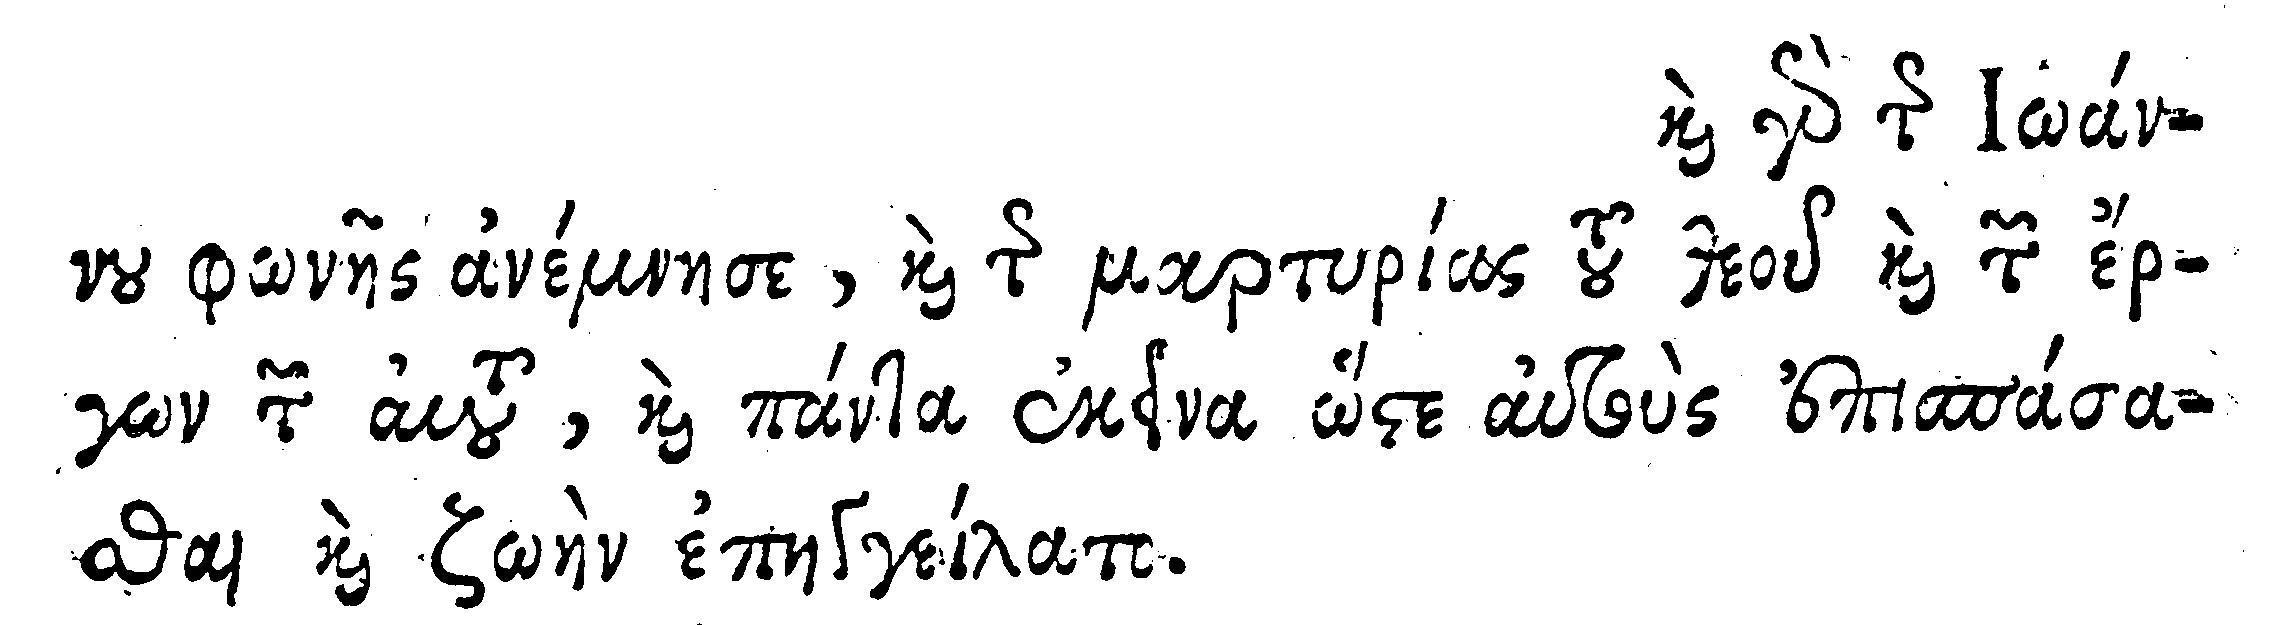 καὶ γὰρ τῆς Ἰωάν-
νου φωνῆς ἀνέμνησε, καὶ τῆς μαρτυρίας τοῦ θεοῦ καὶ τῶν ἔρ-
γων τῶν αὐτοῦ, καὶ πάντα ἐκεῖνα ὥστε αὐτοὺς ἐπισπάσα-
σθαι καὶ ζωὴν ἐπηγγείλατο.